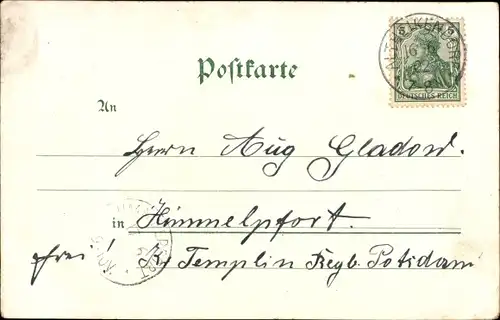 Postkarte
5 5
DEUTSCHES REICH
An
Herrn Aug Gladow.
in Himmelpfort.
frei! b/ Templin Regb. Potsdam